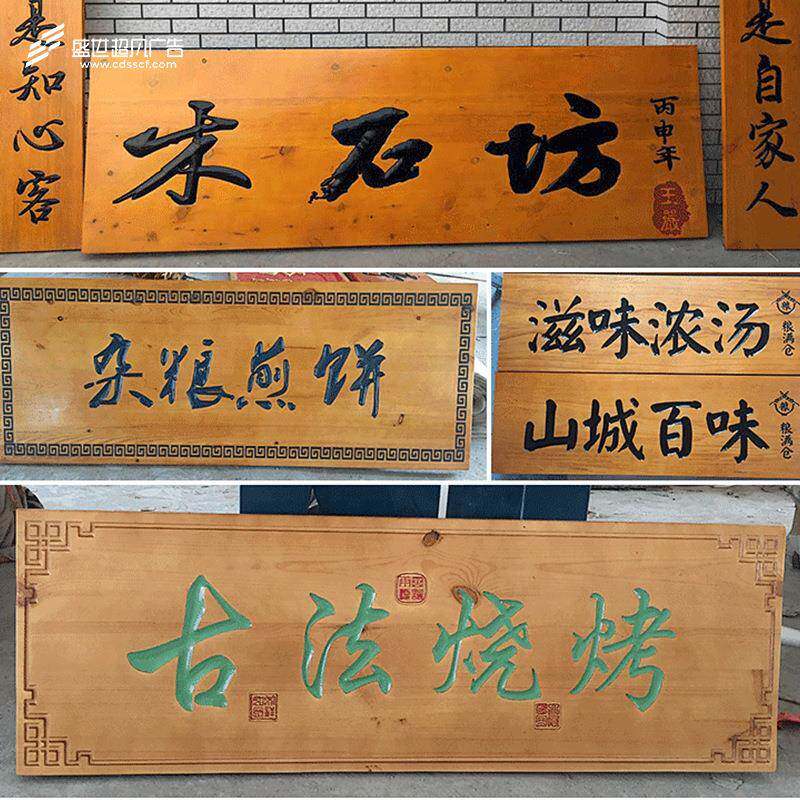 盛世超凡广告
www.cdsscf.com
是知心客
木石坊
丙申年
是自家人
杂粮煎饼
滋味浓汤
粮
粮满仓
山城百味
粮
粮满仓
古法烧烤